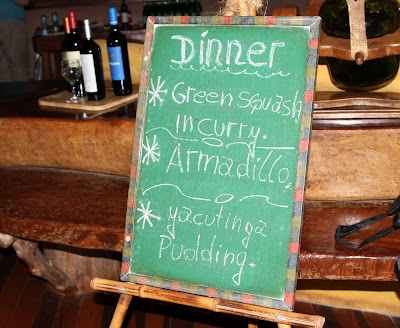 Dinner
* Green squash
in curry.
* Armadillo.
* yacutinga
Pudding.